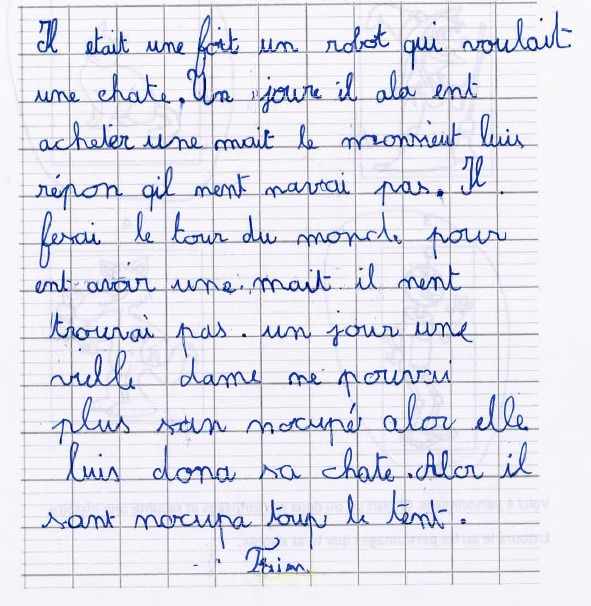 Il etait une foit un robot qui voulait
une chate. Un joure il ala ent
acheter une mait le monsieut luis
répon qil nent navrai pas. Il
ferai le tour du monde pour
ent avoir une. mait il nent
trouvai pas. un jour une
vielle dame ne pouvai
plus san nocupé alor elle
luis dona sa chate. Alor il
sant nocupa toup le tent.